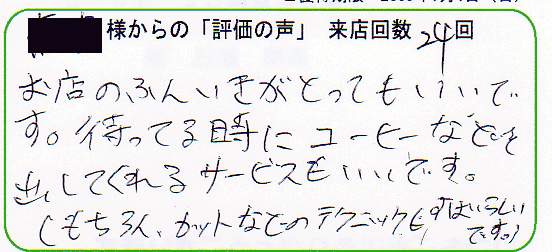 様からの「評価の声」 来店回数 24回
お店のふんいきがとってもいいで
す。待ってる時にコーヒーなどを
出してくれるサービスもいいです。
(もちろん、カットなどのテクニックもすばらしい
です。)